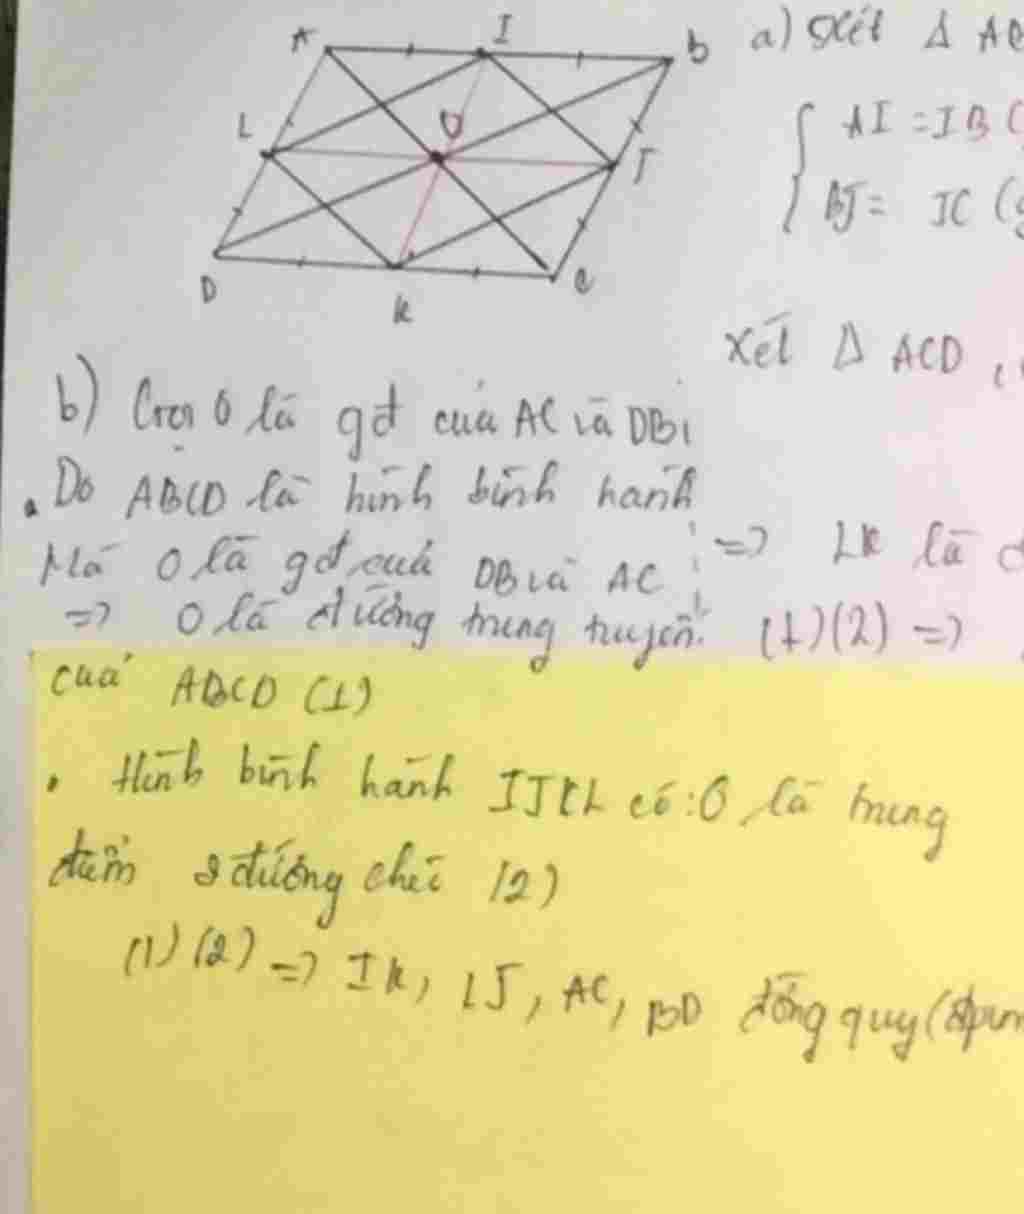 A I B
L O J
D K C
a) Xét Δ AC
AI = IB (
BJ = JC (g
Xét Δ ACD,
=> LK là đ
(1)(2) =>
b) Gọi O là gđ của AC và DB
. Do ABCD là hình bình hành
Mà O là gđ của DB và AC
=> O là đường trung truyến
của ABCD (1)
. Hình bình hành IJKL có: O là trung
điểm 2 đường chéo (2)
(1) (2) => IK, LJ, AC, BD đồng quy (đpcm